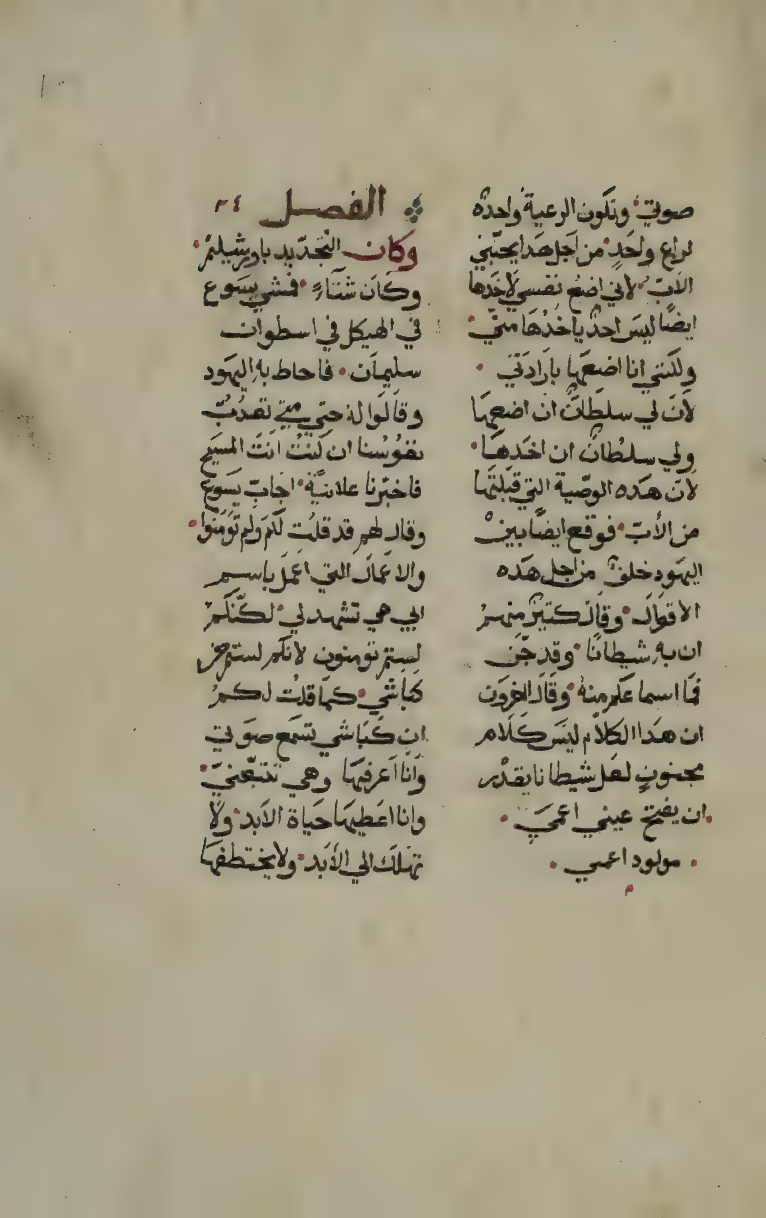 صوتي وتكون الرعية واحده
لراع واحد من اجل هدا يحبّني
الأب لاني اضع نفسي لاخدها
ايضًا ليس احدٌ ياخدها منّي
ولكنّي انا اضعها بارادتي
لأن لي سلطانٌ ان اضعها
ولي سلطانٌ ان اخدها
لان هده الوصية التي قبلتها
من الأب فوقع ايضًا بين
اليهود خلفٌ من اجل هده
الاقوال وقال كتيرٌ منهم
ان به شيطانًا وقد جّن
فما اسماعكم منه وقال اخرون
ان هدا الكلام ليس كلام
مجنونٍ لعل شيطانا يقدر
ان يفتح عيني اعمي
مولود اعمي
الفصل ٢٤
وكان التجديد باورشليم
وكان شتاءً فمشي يسوع
في الهيكل في اسطوان
سليمان فاحاط به اليهود
وقالوا له حتي متي تعدّب
نفوسنا ان كنت انت المسيح
فاخبرنا علانيّة اجاب يسوع
وقال لهم قد قلت لكم ولم تومنوا
والاعمال التي اعمل باسم
ابي هي تشهد لي لكنّكم
لستم تومنون لانكم لستم من
كباشي كما قلت لكم
ان كباشي تسمع صوتي
وانا اعرفها وهي تتبعني
وانا اعطيها حياة الابد ولا
تهلك الي الأبد ولا يختطفها